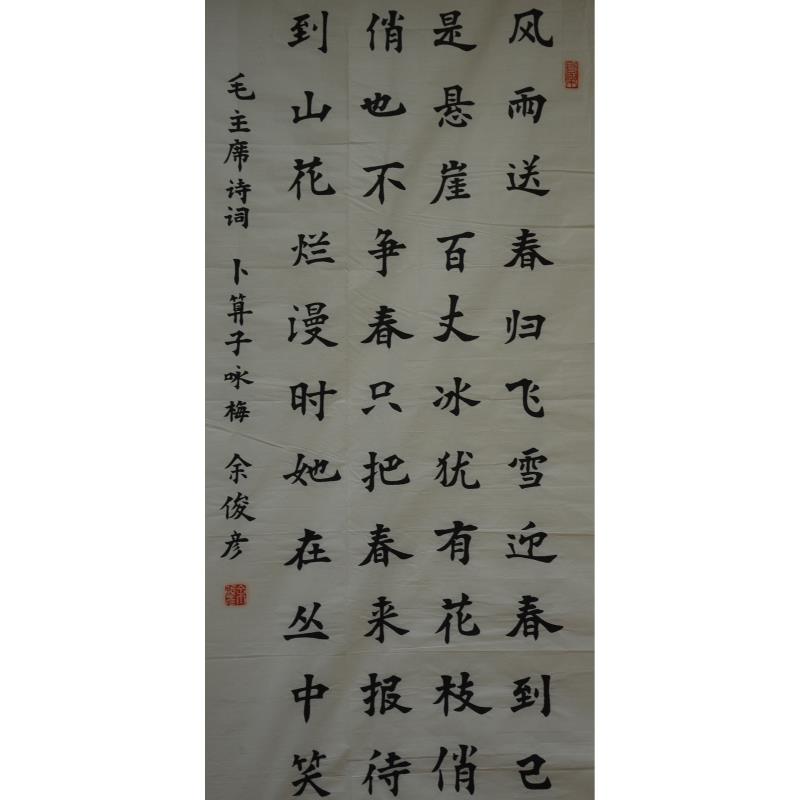 风雨送春归飞雪迎春到己
是悬崖百丈冰犹有花枝俏
俏也不争春只把春来报待
到山花烂漫时她在丛中笑
毛主席诗词 卜算子咏梅 余俊彦